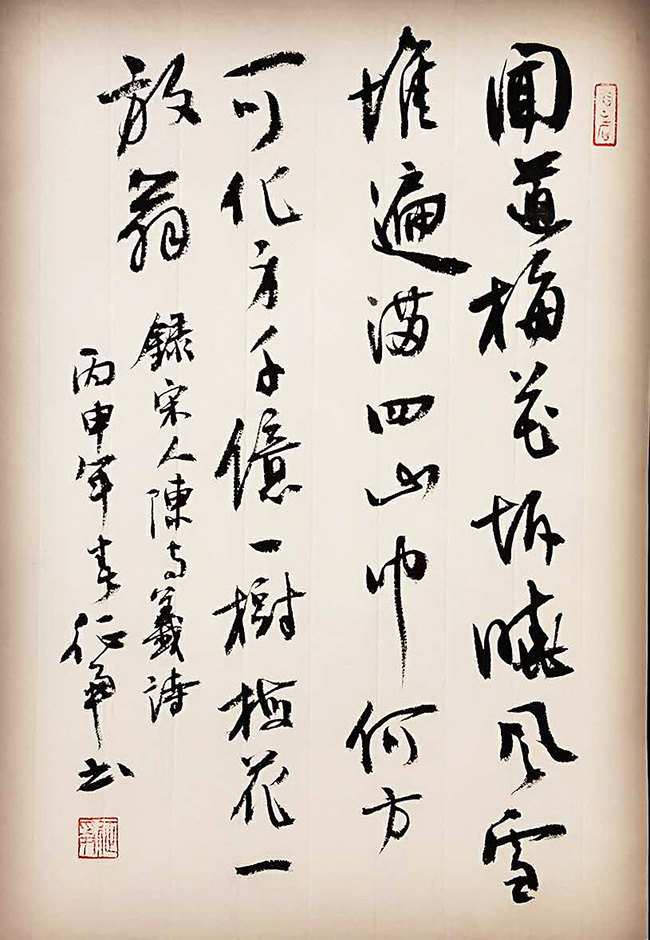 聞道梅花坼曉風雪
堆遍滿四山中何方
可化身千億一樹梅花一
放翁
錄宋人陳与義詩
丙申年春征书